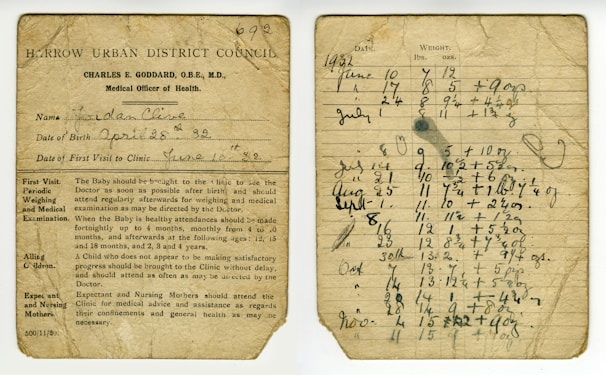 692
HARROW URBAN DISTRICT COUNCIL
CHARLES E. GODDARD, O.B.E., M.D.,
Medical Officer of Health.
Name Jordan Clive
Date of Birth April 28th 32
Date of First Visit to Clinic June 10th 32
First Visit. The Baby should be brought to the Clinic to see the
Periodic Doctor as soon as possible after birth and should
Weighing attend regularly afterwards for weighing and medical
and Medical examination as may be directed by the Doctor.
Examination. When the Baby is healthy attendances should be made
fortnightly up to 4 months, monthly from 4 to 10
months, and afterwards at the following ages: 12, 15
and 18 months, and 2, 3 and 4 years.
Ailing A Child who does not appear to be making satisfactory
Children. progress should be brought to the Clinic without delay,
and should attend as often as may be directed by the
Doctor.
Expectant Expectant and Nursing Mothers should attend the
and Nursing Clinic for medical advice and assistance as regards
Mothers. their confinements and general health as may be
necessary.
500/11/30.
DATE. WEIGHT.
lbs. ozs.
1932
June 10 7 12
" 17 8 5 + 9 ozs
" 24 8 9¼ + 4¼
July 1 8 11
" 8 9 5 + 10 oz
July 14 9 10½ + 5½
" 21 10
Aug 25 11 7¼
Sept 1 11 10 + 2¾
8 11 11½ + 1½
" 16 12 1 + 5½
" 23 12 8¾ + 7¾
30th 13 2 +
Oct 7 13 7 + 5
" 14 13 12¼ + 5¼
14 1 + 4¾
" 28 14 9 + 8 oz
Nov 4 15 2 + 9 oz
" 11 15 9